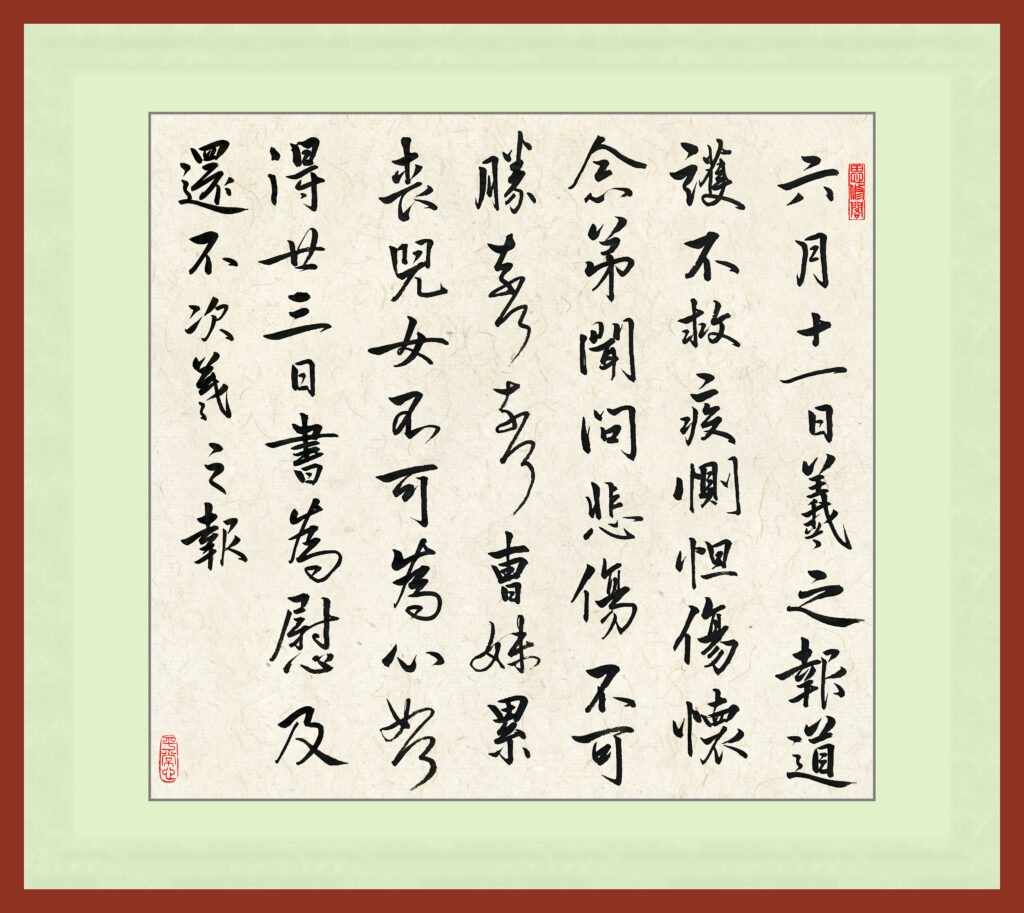 思修閣
六月十一日羲之報道
護不救疾惻怛傷懷
念弟聞問悲傷不可
勝奈何奈何曹妹累
喪兒女不可為心如何
得廿三日書為慰及
還不次羲之報
平常心